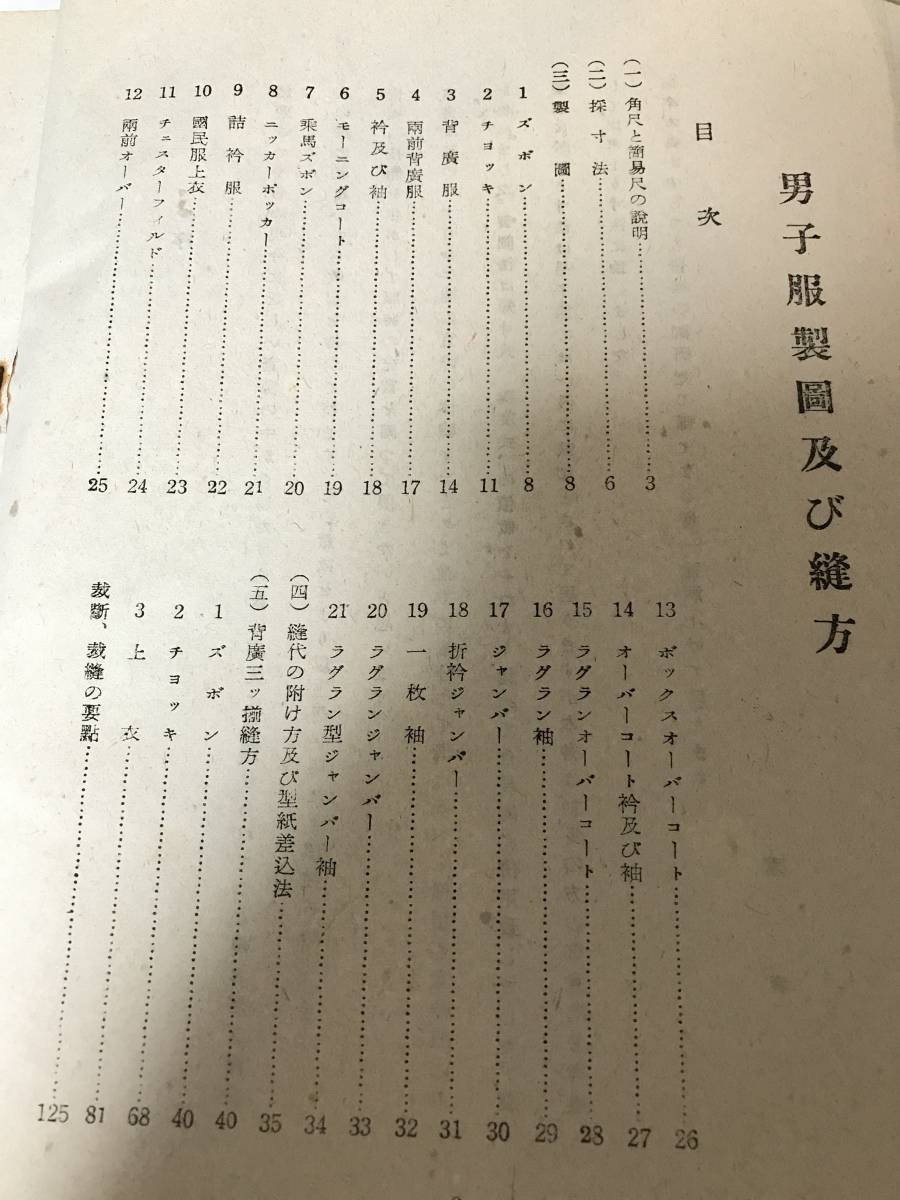 男子服製圖及び縫方
目次
(一) 角尺と簡易尺の說明……3
(二) 採寸法……6
(三) 製圖……8
1 ズボン……8
2 チョッキ……11
3 背廣服……14
4 兩前背廣服……17
5 衿及び袖……18
6 モーニングコート……19
7 乘馬ズボン……20
8 ニッカーボッカー……21
9 詰衿服……22
10 國民服上衣……23
11 チェスターフィルド……24
12 兩前オーバー……25
13 ボックスオーバーコート……26
14 オーバーコート衿及び袖……27
15 ラグランオーバーコート……28
16 ラグラン袖……29
17 ジャンパー……30
18 折衿ジャンパー……31
19 一枚袖……32
20 ラグランジャンパー……33
21 ラグラン型ジャンパー袖……34
(四) 縫代の附け方及び型紙差込法……35
(五) 背廣三ッ揃縫方……40
1 ズボン……40
2 チョッキ……68
3 上衣……81
裁斷、裁縫の要點……125